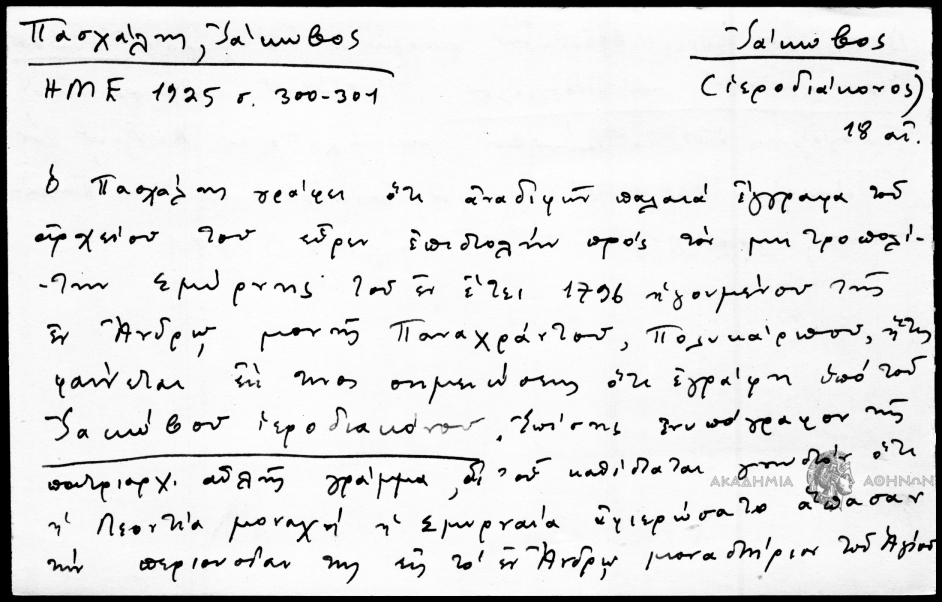 Πασχάλης, Ἰάκωβος
Ἰάκωβος
ΗΜΕ 1925 σ. 300-301
(ἱεροδιάκονος)
18 αἰ.
ὁ Πασχάλης γράφει ὅτι ἀναδιφῶν παλαιά ἔγγραφα τοῦ
ἀρχείου του εὗρεν ἐπιστολήν πρός τόν μητροπολί-
-την Σμύρνης τοῦ ἐν ἔτει 1796 ἡγουμένου τῆς
ἐν Ἄνδρῳ μονῆς Παναχράντου, Πολυκάρπου, ἥτις
φαίνεται ἔκ τινος σημειώσεως ὅτι ἐγράφη ὑπό τοῦ
Ἰακώβου ἱεροδιακόνου. Ἐπίσης ἐνυπόγραφον τῆς
πατριαρχ. αὐλῆς γράμμα, δι' οὗ καθίσταται γνωστόν ὅτι
ἡ Λεοντία μοναχή ἡ Σμυρναία ἀφιερώσατο ἅπασαν
τήν περιουσίαν της εἰς τό ἐν Ἄνδρῳ μοναστήριον τοῦ Ἁγίου
ΑΚΑΔΗΜΙΑ ΑΘΗΝΩΝ